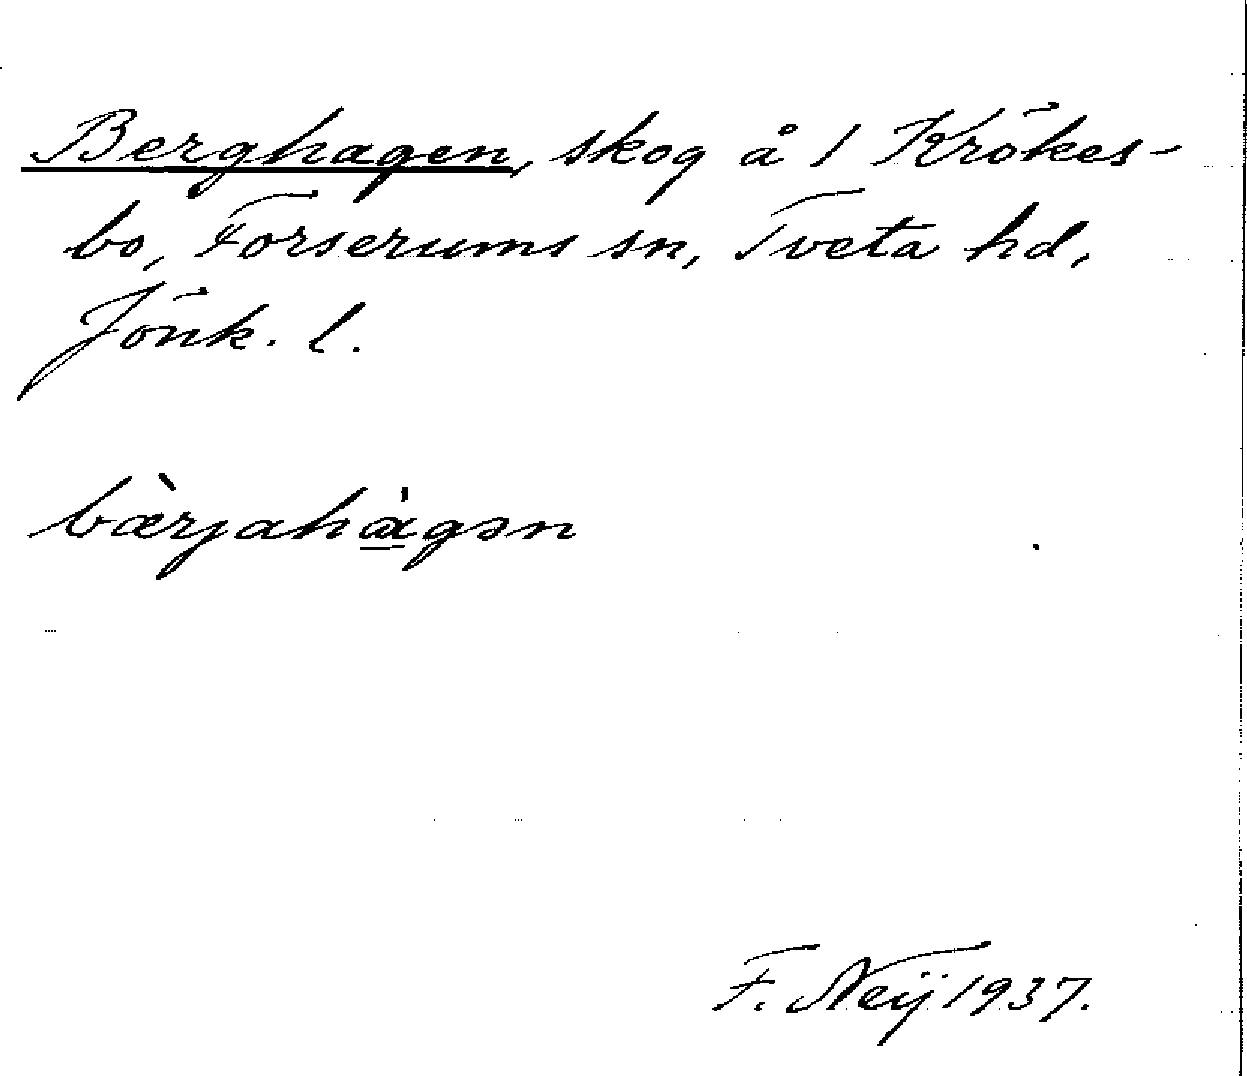 Berghagen, skog å 1 Krökes-
bo, Forserums sn, Tveta hd,
Jönk. l.
bæ̀rjahą̊gən
F. Neij 1937.